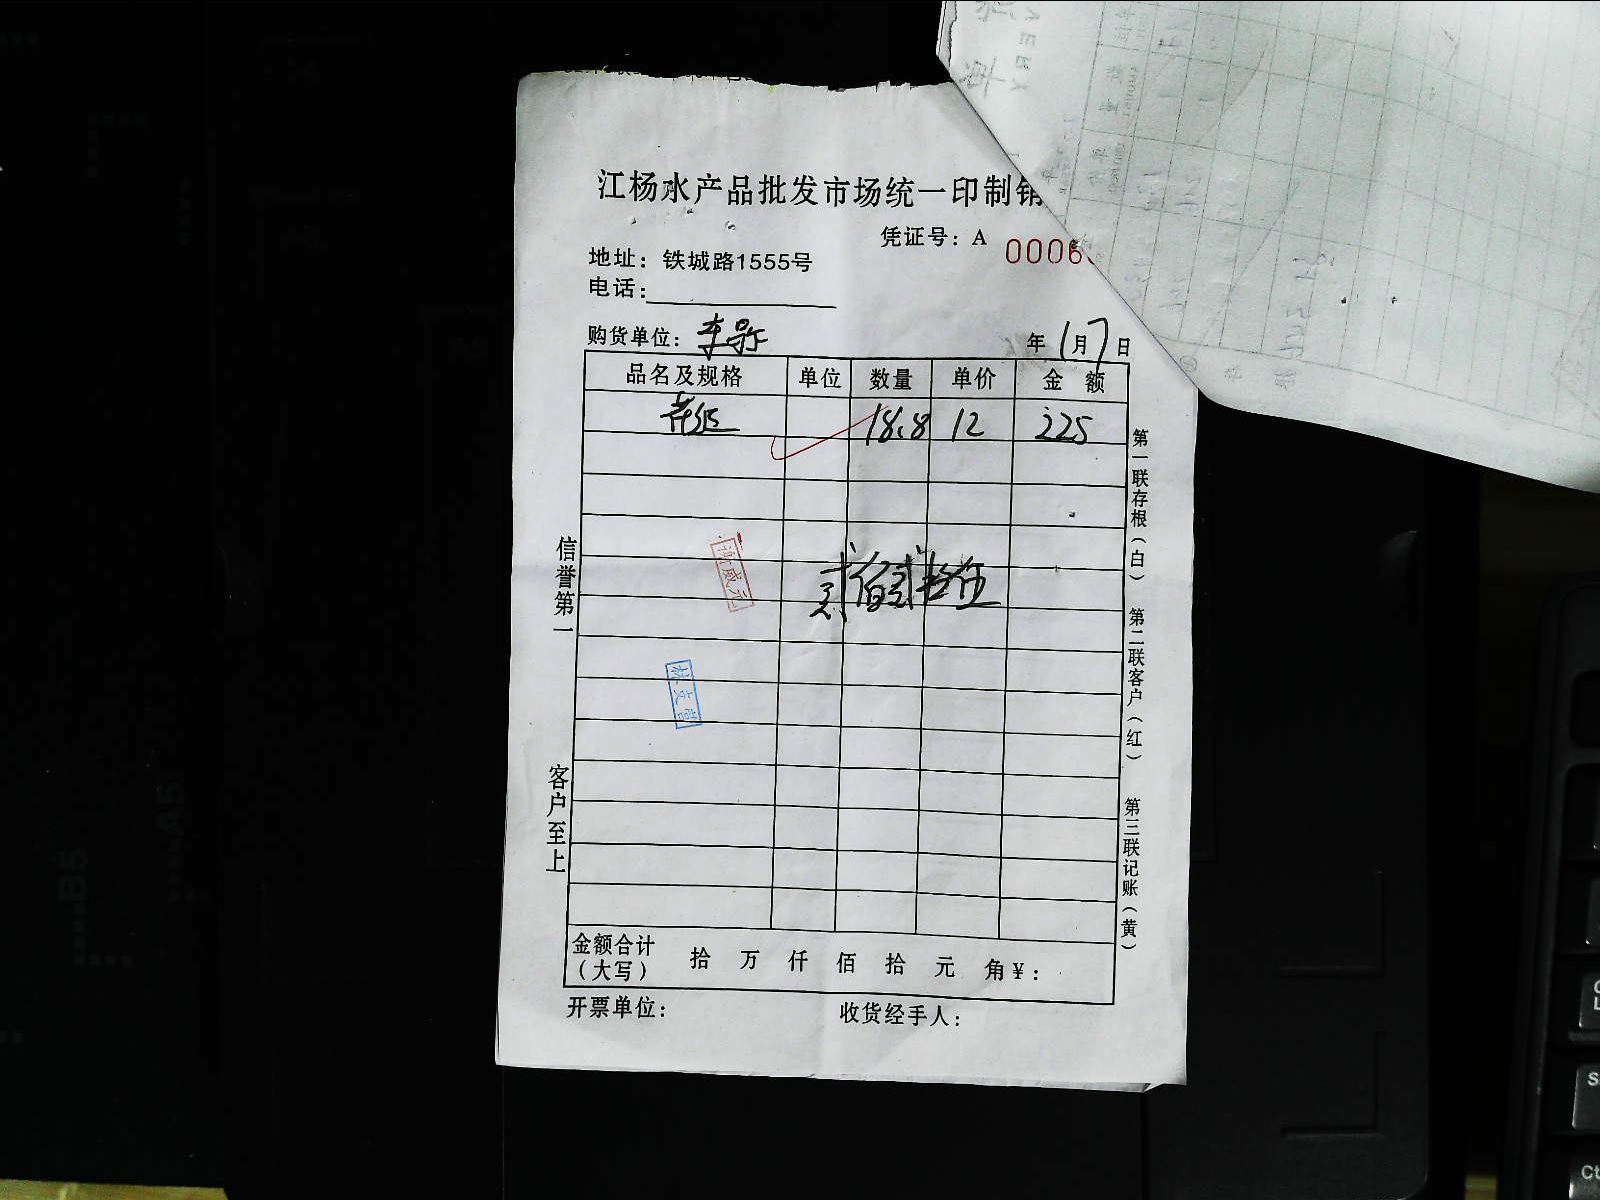 江杨水产品批发市场统一印制销
凭证号：A 0006
地址：铁城路1555号
电话：
购货单位：
年 1月7日
品名及规格 单位 数量 单价 金 额
18.8 12 225
贰佰贰拾伍
谢威元
林文营
信誉第一
客户至上
第一联存根（白）
第二联客户（红）
第三联记账（黄）
金额合计（大写） 拾 万 仟 佰 拾 元 角 ¥：
开票单位： 收货经手人：